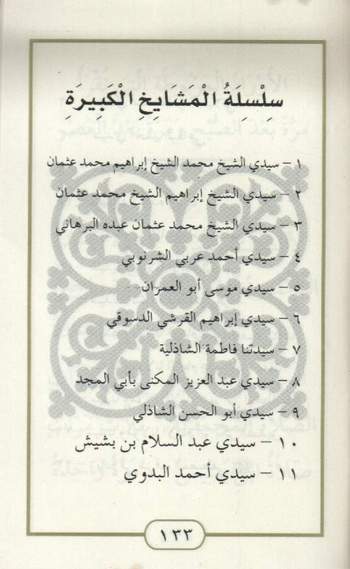 سِلْسِلَةُ الْمَشَايِخِ الْكَبِيرَةِ
١ – سيدي الشيخ محمد الشيخ إبراهيم محمد عثمان
٢ – سيدي الشيخ إبراهيم الشيخ محمد عثمان
٣ – سيدي الشيخ محمد عثمان عبده البرهاني
٤ – سيدي أحمد عربي الشرنوبي
٥ – سيدي موسى أبو العمران
٦ – سيدي إبراهيم القرشي الدسوقي
٧ – سيدتنا فاطمة الشاذلية
٨ – سيدي عبد العزيز المكنى بأبي المجد
٩ – سيدي أبو الحسن الشاذلي
١٠ – سيدي عبد السلام بن بشيش
١١ – سيدي أحمد البدوي
١٣٣